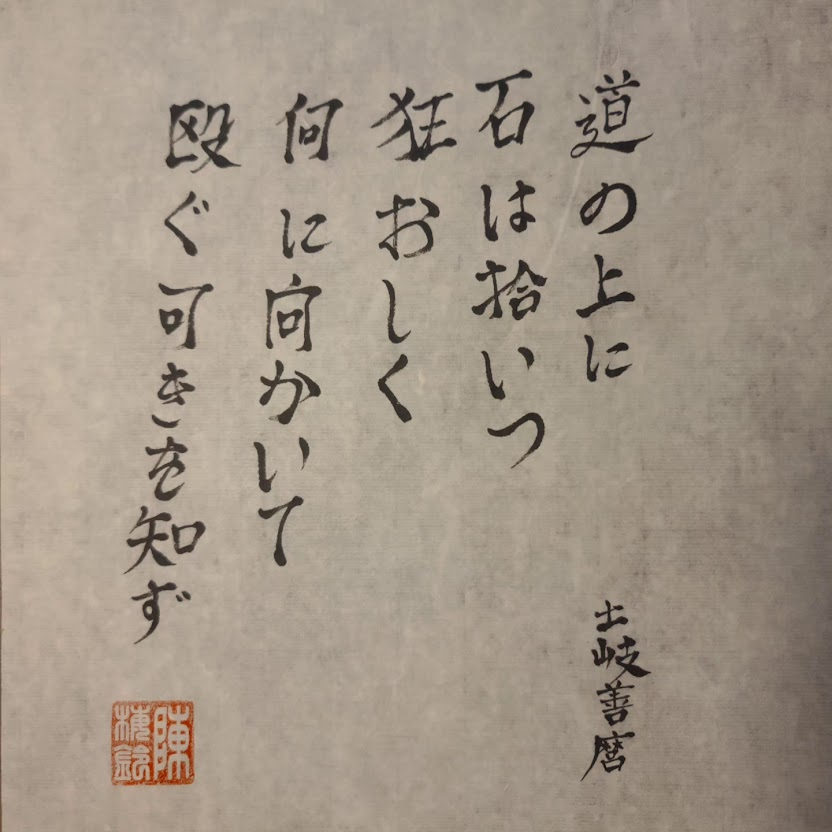 道の上に
石は拾いつ
狂おしく
何に向かいて
殴ぐ可きを知ず
土岐善麿
陳